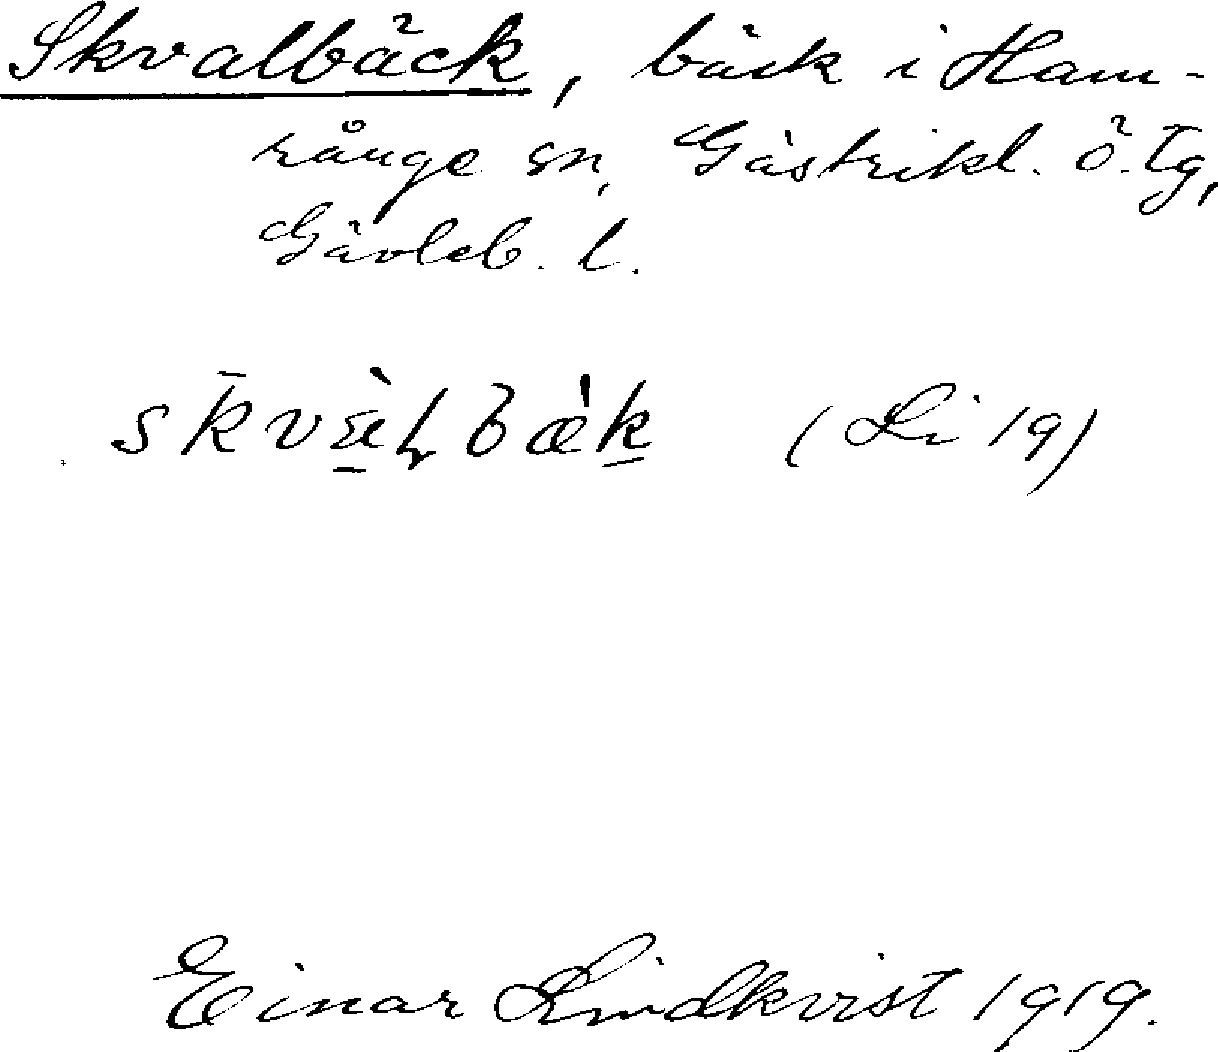 Skvalbäck, bäck i Ham-
rånge sn, Gästrikl. ö. tg,
Gävleb. l.
(Li 19)
Einar Lindkvist 1919.